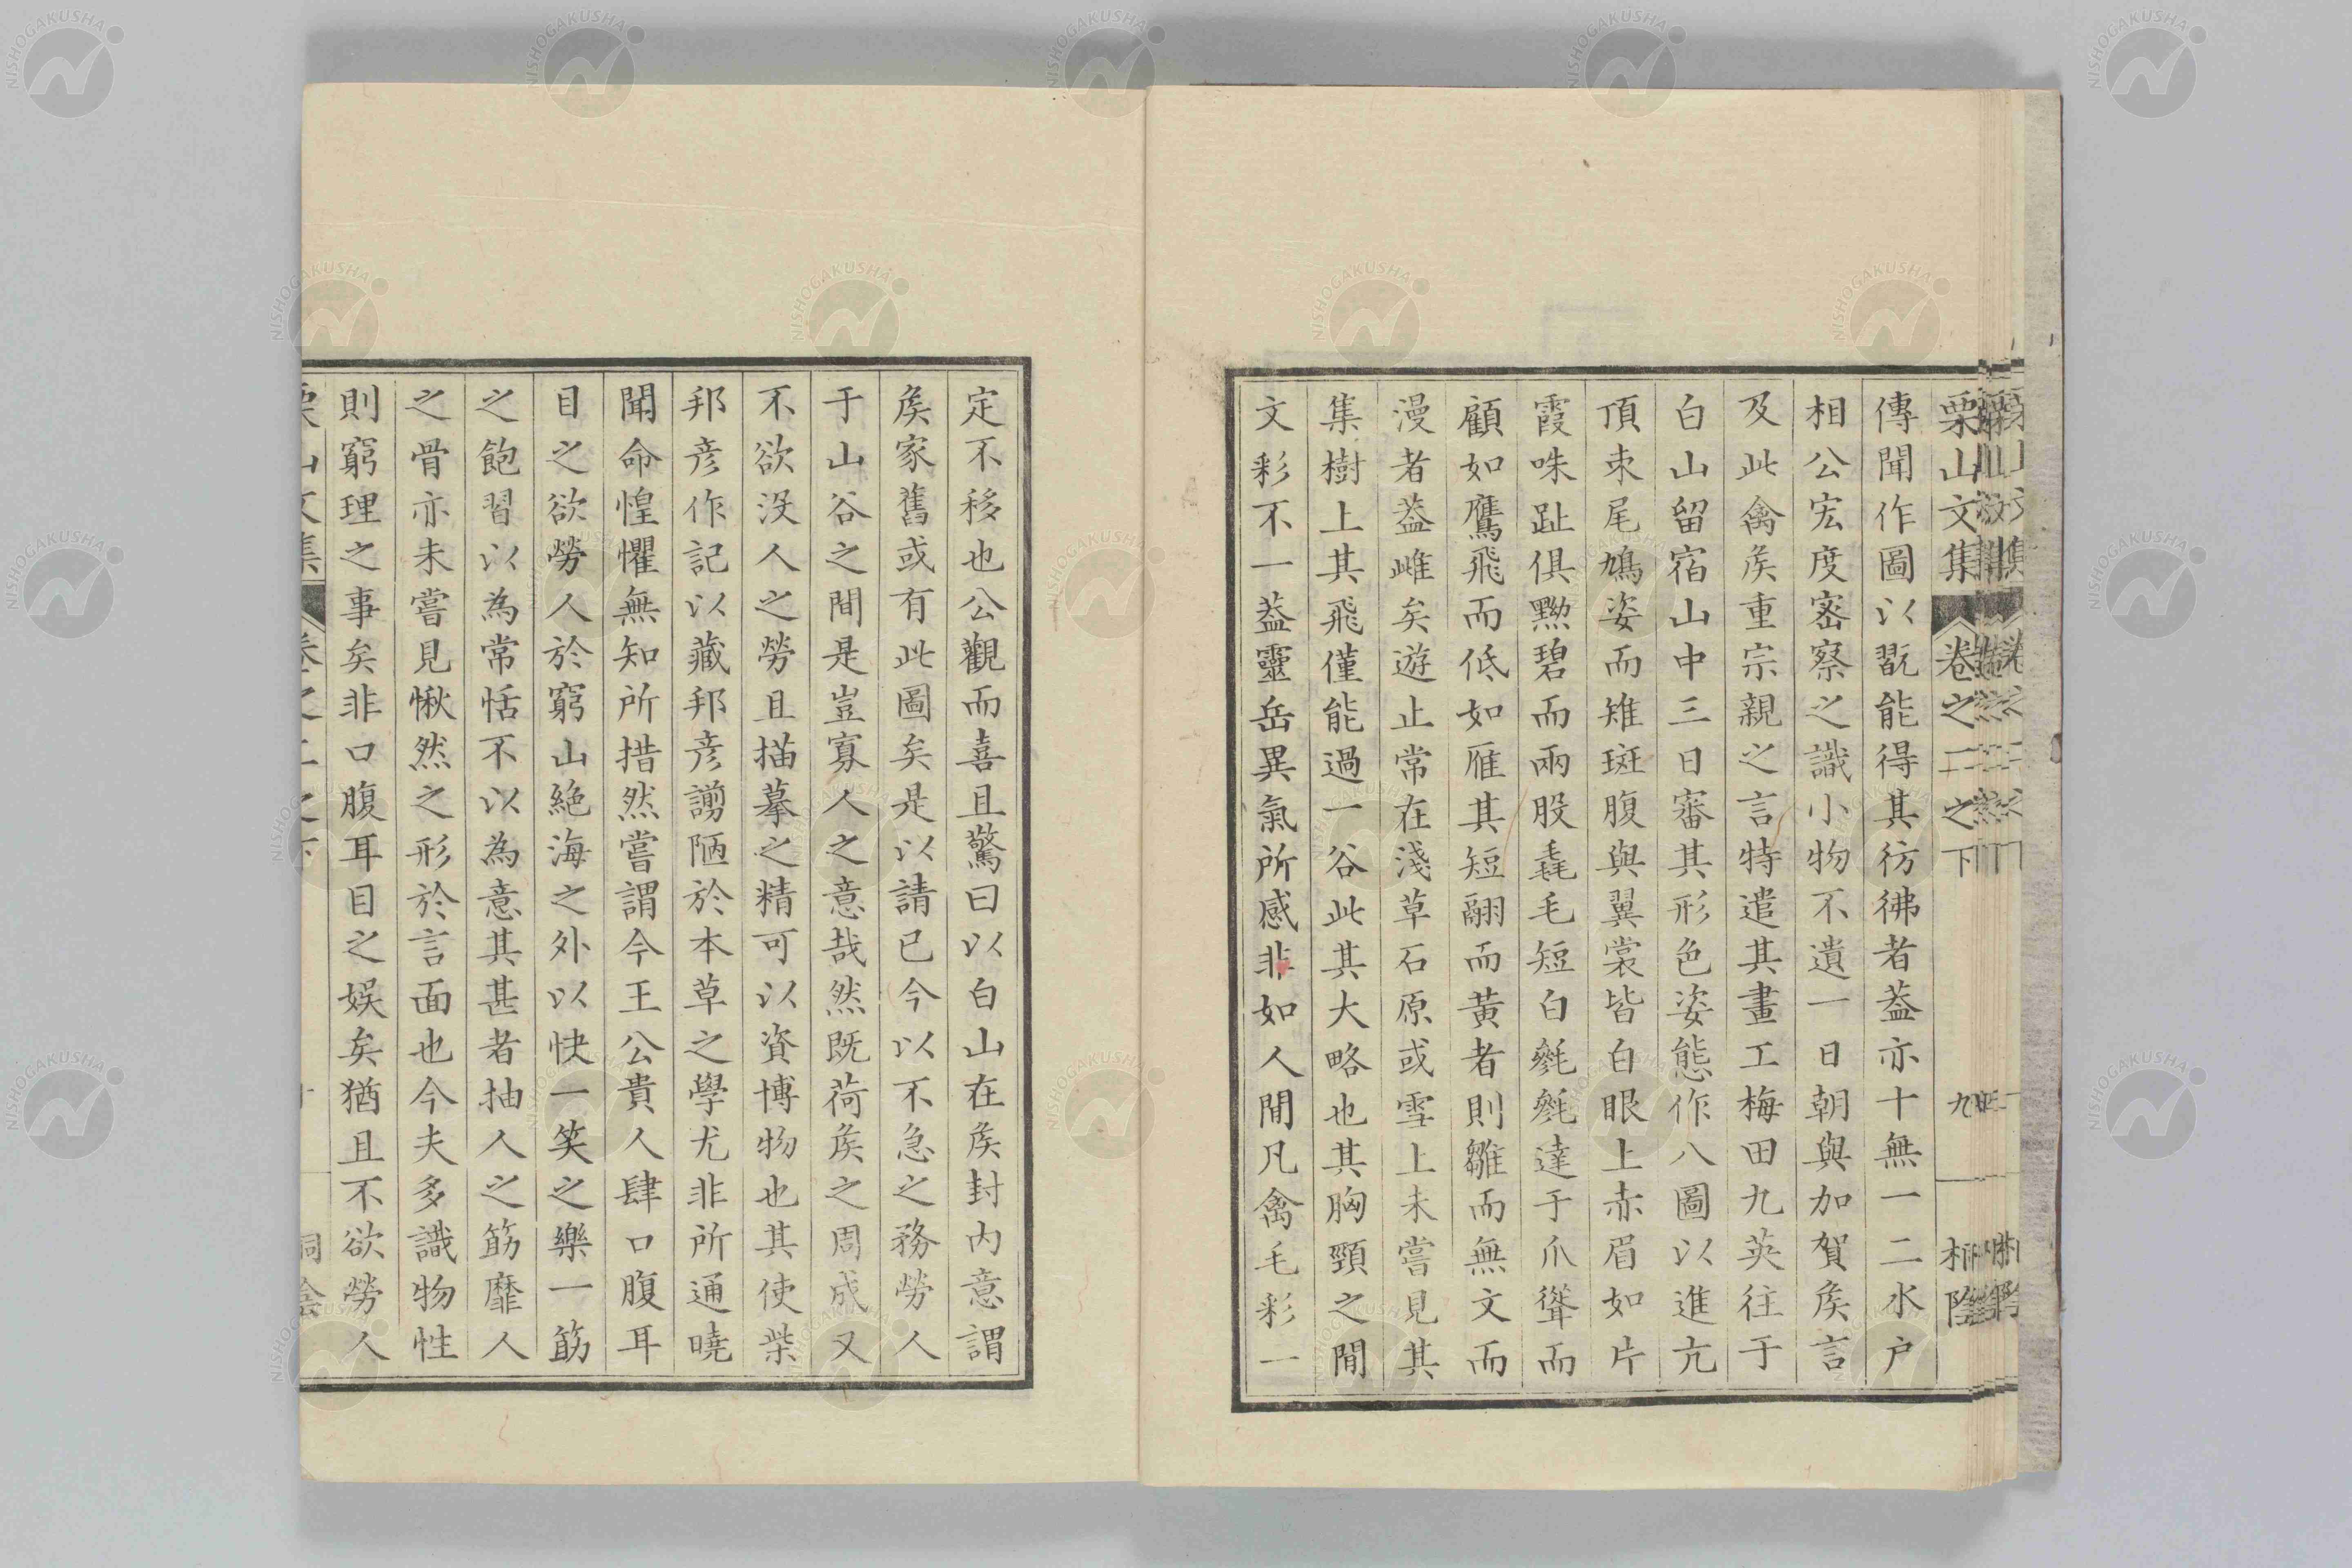 栗山文集 卷之二之下 九
傳聞作圖以翫能得其彷彿者葢亦十無一二水户
相公宏度宻察之識小物不遺一日朝與加賀矦言
及此禽矦重宗親之言特遣其畫工梅田九英往于
白山留宿山中三日審其形色姿態作八圖以進亢
頂朿尾鳩姿而雉斑腹與翼裳皆白眼上赤眉如片
霞咮趾俱黝碧而兩股毳毛短白毿毿達于爪聳而
顧如鷹飛而低如雁其短翮而黃者則雛而無文而
漫者葢雌矣遊止常在淺草石原或雪上未嘗見其
集樹上其飛僅能過一谷此其大略也其胸頸之閒
文彩不一葢靈岳異氣所感非如人閒凡禽毛彩一
定不移也公觀而喜且驚曰以白山在矦封内意謂
矦家舊或有此圖矣是以請已今以不急之務勞人
于山谷之間是豈寡人之意哉然既荷矦之周成又
不欲没人之勞且描摹之精可以資博物也其使柴
邦彦作記以藏邦彦謭陋於本草之學尤非所通曉
聞命惶懼無知所措然嘗謂今王公貴人肆口腹耳
目之欲勞人於窮山絶海之外以快一笑之樂一筯
之飽習以為常恬不以為意其甚者抽人之筋靡人
之骨亦未嘗見愀然之形於言面也今夫多識物性
則窮理之事矣非口腹耳目之娛矣猶且不欲勞人